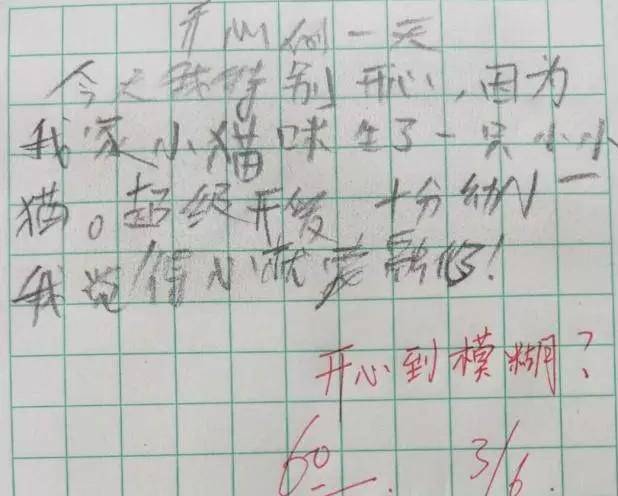 开心的一天
今天我特别开心,因为
我家小猫咪生了一只小小
猫。超级开爱 十分幼小一
我觉得小就要融化!
开心到模糊?
60 3/6.